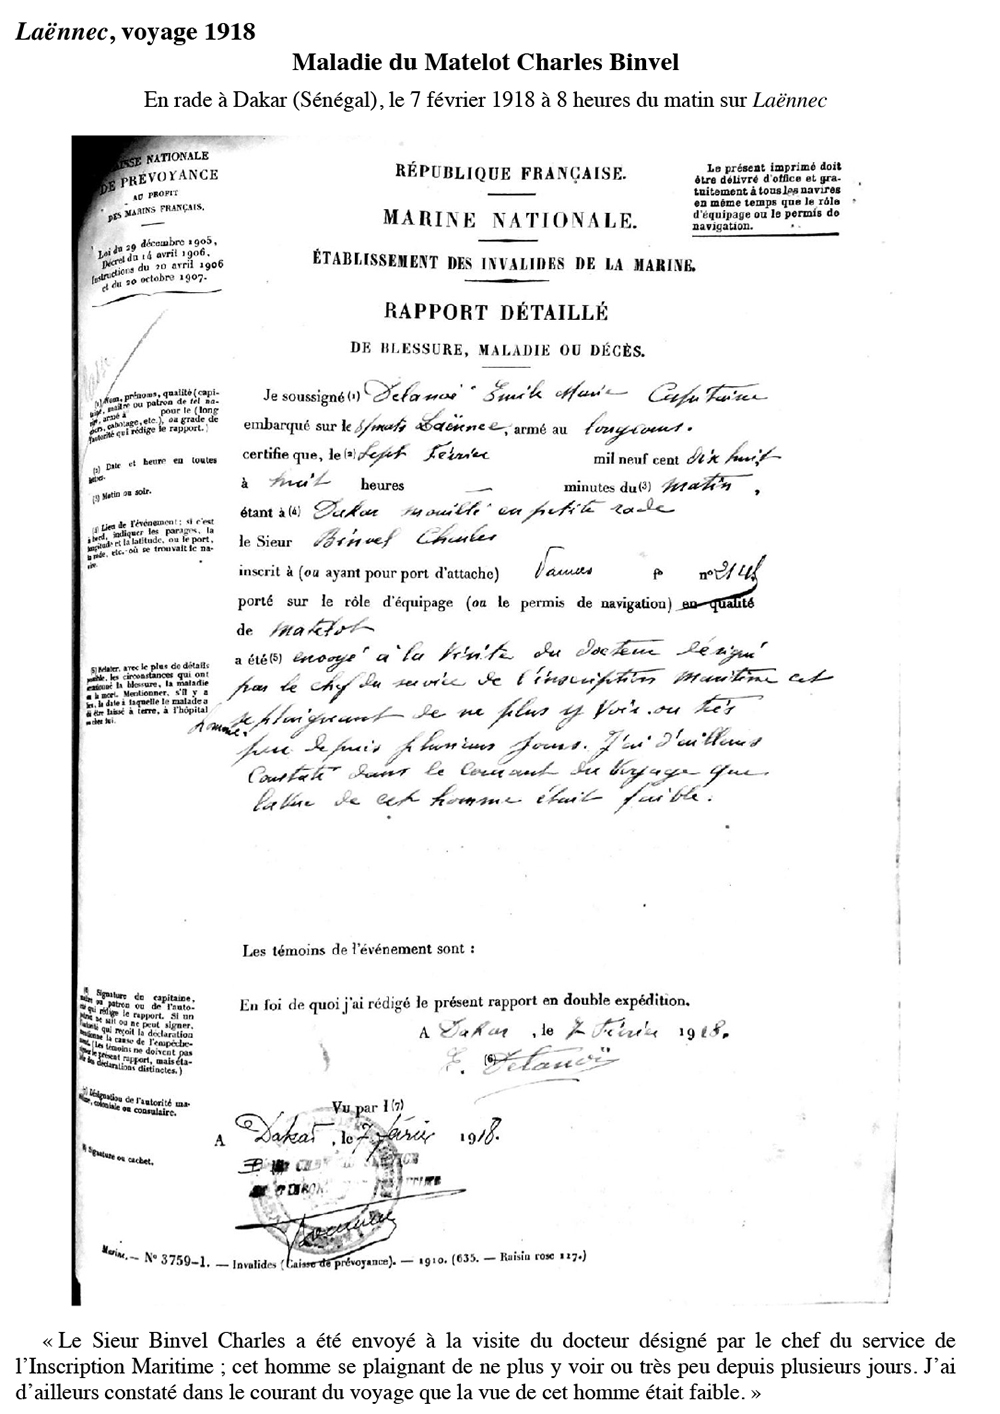 Laënnec, voyage 1918
Maladie du Matelot Charles Binvel
En rade à Dakar (Sénégal), le 7 février 1918 à 8 heures du matin sur Laënnec
CAISSE NATIONALE
DE PRÉVOYANCE
AU PROFIT
DES MARINS FRANÇAIS.
Loi du 29 décembre 1905,
Décret du 14 avril 1906,
Instructions du 20 avril 1906
et du 20 octobre 1907.
RÉPUBLIQUE FRANÇAISE.
MARINE NATIONALE.
ÉTABLISSEMENT DES INVALIDES DE LA MARINE.
Le présent imprimé doit
être délivré d'office et gra-
tuitement à tous les navires
en même temps que le rôle
d'équipage ou le permis de
navigation.
RAPPORT DÉTAILLÉ
DE BLESSURE, MALADIE OU DÉCÈS.
(1) Nom, prénoms, qualité (capi-
taine, maître ou patron de tel na-
vire, armé à pour le (long
cours, cabotage, etc.), ou grade de
l'autorité qui rédige le rapport.)
(2) Date et heure en toutes
lettres.
(3) Matin ou soir.
(4) Lieu de l'événement; si c'est
à bord, indiquer les parages, la
longitude et la latitude, ou le port,
la rade, etc. où se trouvait le na-
vire.
Je soussigné (1) Delanoë Emile Marie Capitaine
embarqué sur le 3/mats Laënnec, armé au longcours.
certifie que, le (2) Sept Février mil neuf cent dix huit
à huit heures — minutes du (3) matin,
étant à (4) Dakar mouillé en petite rade
le Sieur Binvel Charles
inscrit à (ou ayant pour port d'attache) Vannes n° 2148
porté sur le rôle d'équipage (ou le permis de navigation) en qualité
de matelot
(5) Relater, avec le plus de détails
possible, les circonstances qui ont
occasionné la blessure, la maladie
ou la mort. Mentionner, s'il y a
lieu, la date à laquelle le malade a
dû être laissé à terre, à l'hôpital
ou chez lui.
a été (5) envoyé à la visite du docteur désigné
par le chef du service de l'inscription Maritime cet
homme se plaignant de ne plus y voir ou très
peu depuis plusieurs jours. J'ai d'ailleurs
constaté dans le courant du voyage que
la vue de cet homme était faible.
Les témoins de l'événement sont :
(6) Signature du capitaine,
maître ou patron ou de l'auto-
rité qui rédige le rapport. Si un
patron ne sait ou ne peut signer,
l'autorité qui reçoit la déclaration
mentionne la cause de l'empêche-
ment. (Les témoins ne doivent pas
signer le présent rapport, mais éta-
blir des déclarations distinctes.)
En foi de quoi j'ai rédigé le présent rapport en double expédition.
A Dakar, le 7 Février 1918.
(6) E. Delanoë
(7) Désignation de l'autorité ma-
ritime, coloniale ou consulaire.
(8) Signature ou cachet.
Vu par l (7)
A Dakar, le 7 février 1918.
Marine. — N° 3759-1. — Invalides (Caisse de prévoyance). — 1910. (635. — Raisin rose 117.)
« Le Sieur Binvel Charles a été envoyé à la visite du docteur désigné par le chef du service de
l'Inscription Maritime ; cet homme se plaignant de ne plus y voir ou très peu depuis plusieurs jours. J'ai
d'ailleurs constaté dans le courant du voyage que la vue de cet homme était faible. »